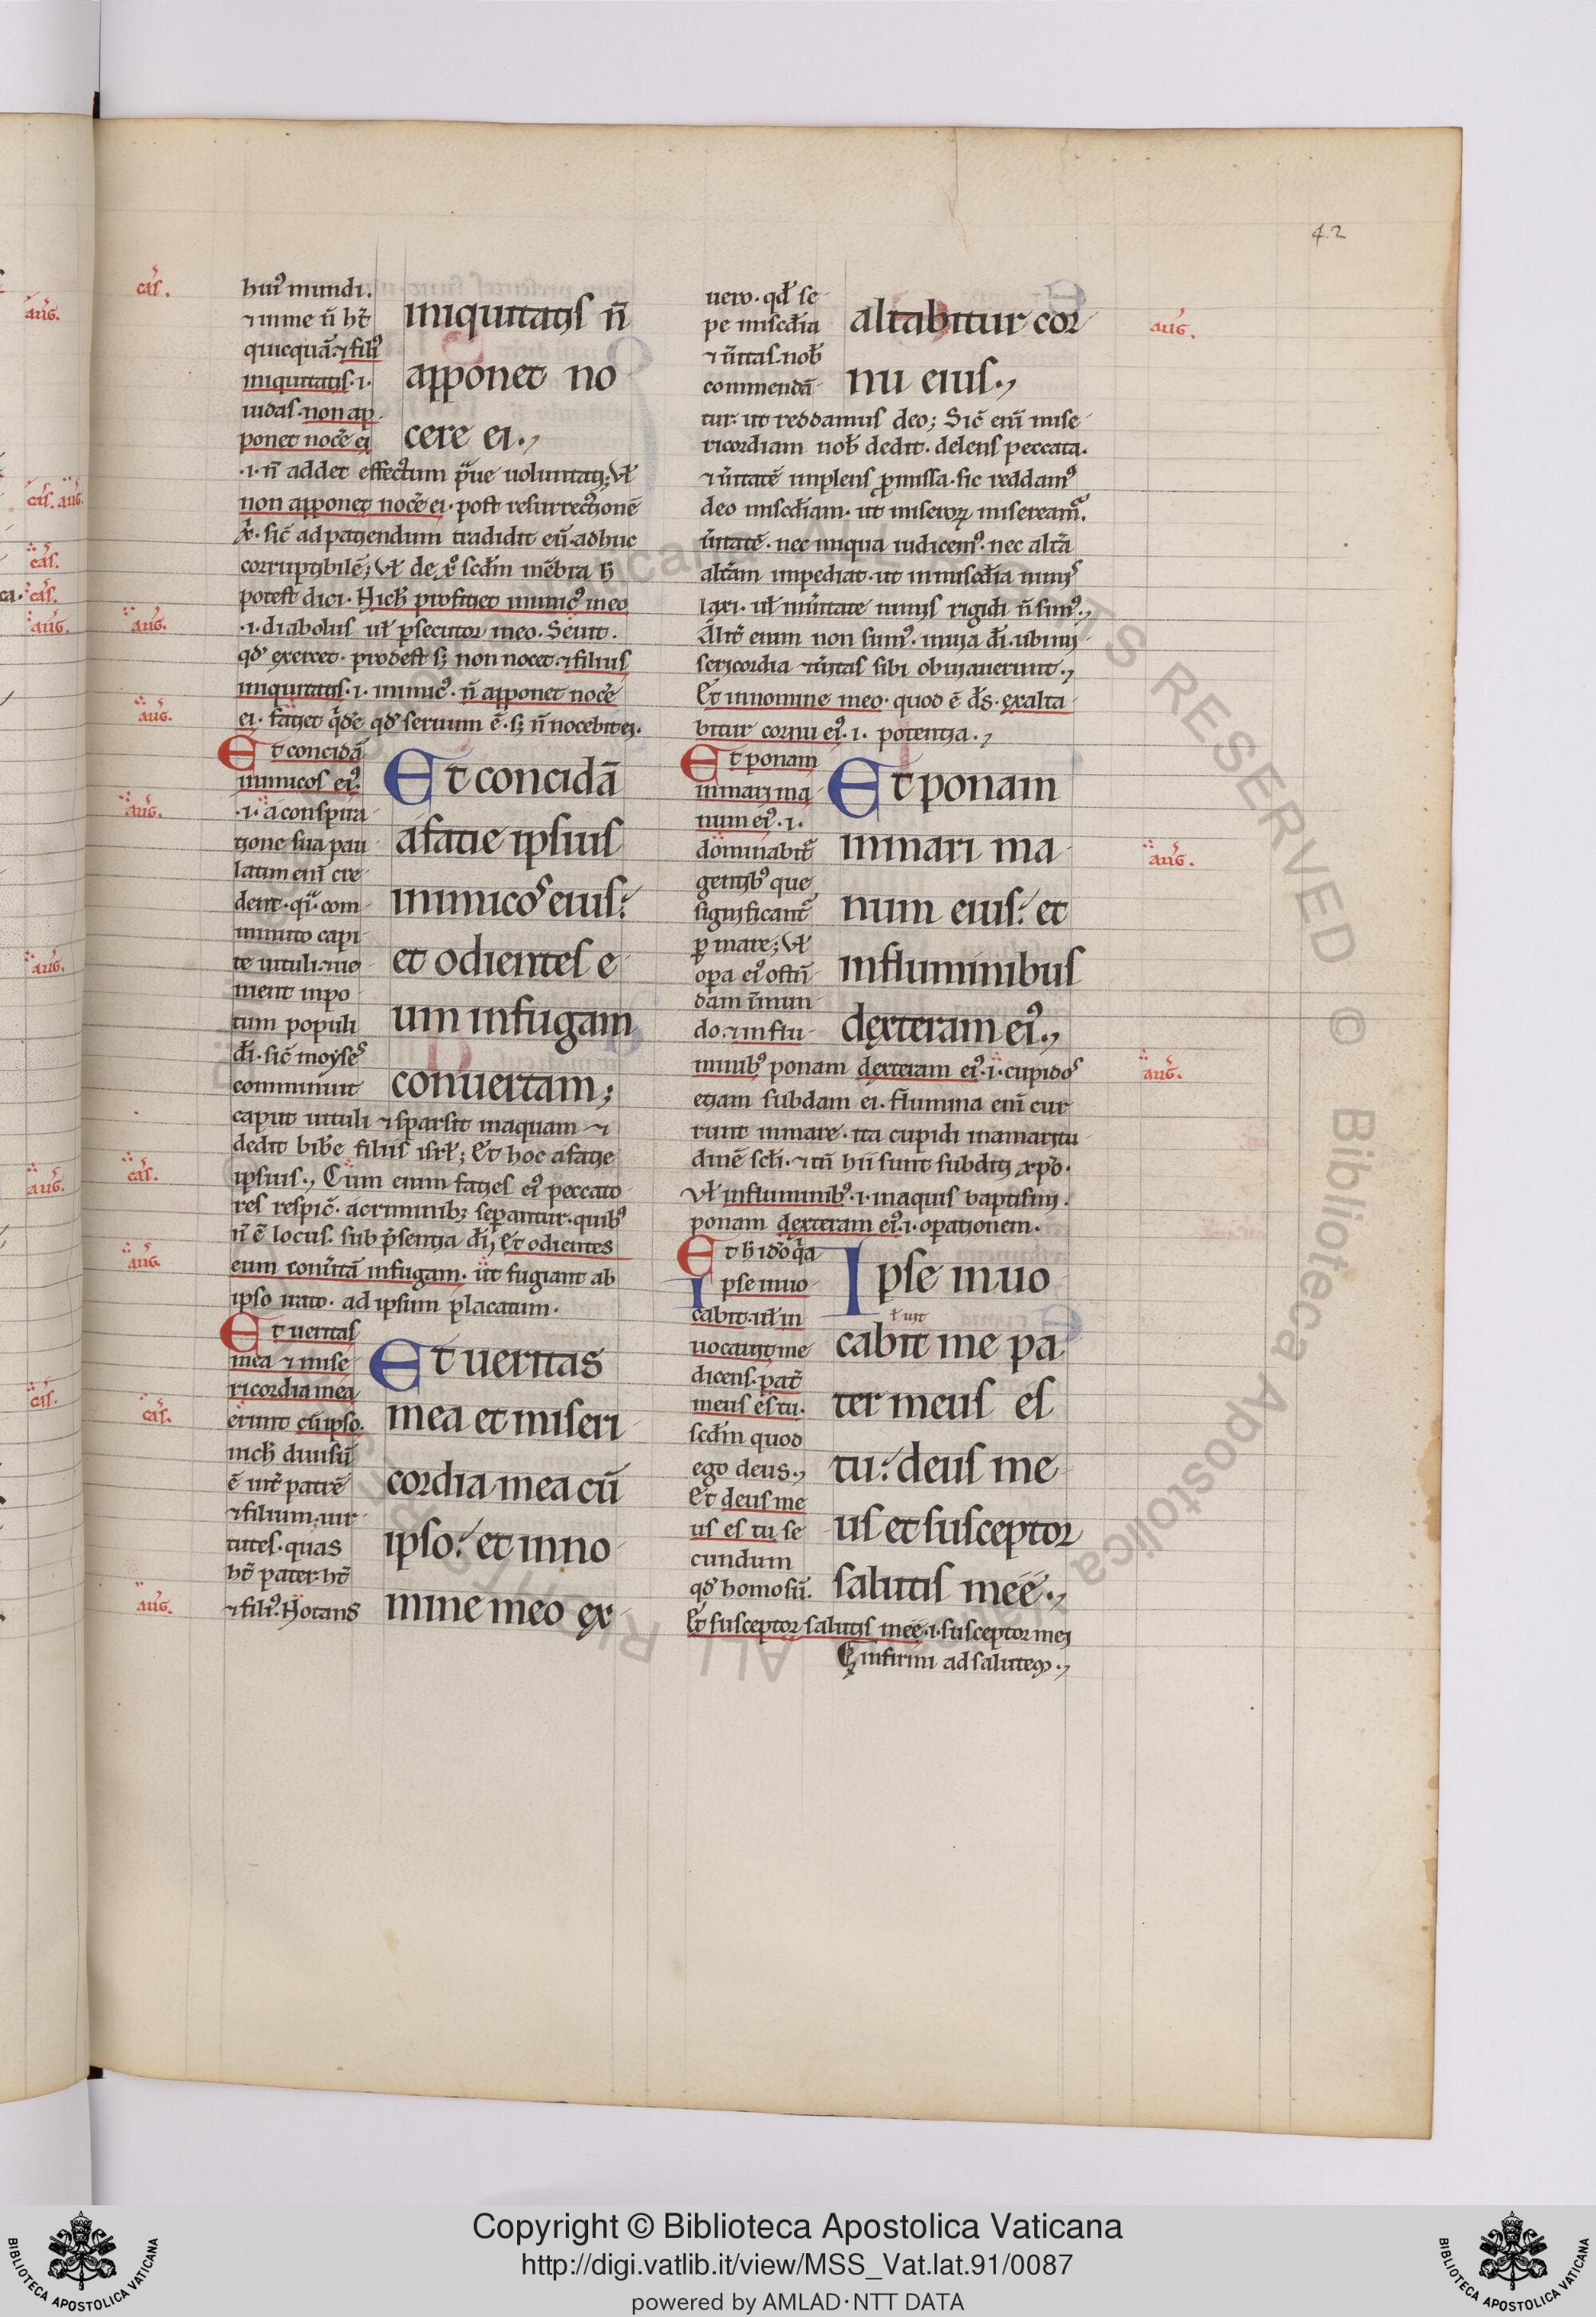 42
cas.
huiꝰ mundi.
⁊ in me ñ ht̃
quicquã. ⁊ filiꝰ
iniquitatis .i.
iudas. non ap
ponet noc̃e ei
iniquitatis ñ
apponet no
cere ei.,
.i. ñ addet effectum praue uoluntatis; Vł
non apponet noc̃e ei. post resurrectionẽ
sic̃ ad patiendum tradidit eũ adhuc
corruptibilẽ; Vł de xp̃o scd̃m mẽbra h̃
potest dici. Nich̃ proficiet inimicꝰ in eo
aug.
.i. diabolus uł ꝑsecutor in eo. Seuit.
qđ exercet. prodest sꝫ non nocet. ⁊ filius
iniquitatis .i. inimicꝰ. ñ apponet noc̃e
aug.
ei. qđ seruum ẽ. sꝫ ñ nocebit ei.
Et concidã
inimicos eiꝰ.
aug.
.i. a conspira
tione sua pau
latim enĩ cre
dent. com
minuto capi
te uituli. ue
nient in po
tum populi
dĩ. sic̃ moyses
comminuit
Et concidã
a facie ipsius
inimicos eius:
et odientes e
um in fugam
conuertam;
caput uituli ⁊ sparsit in aquam ⁊
dedit bib̃e filiis isrł; Et hoc a facie
cas.
ipsius., Cum enim facies eiꝰ peccato
res respic̃. a criminibꝫ seꝑantur. quibꝰ
ñ ẽ locus. sub p̃sentia dĩ, Et odientes
aug.
eum conũtã in fugam. ut fugiant ab
ipso irato. ad ipsum placatum.
Et ueritas
mea ⁊ mise
ricordia mea
cas.
erunt cũ ipso.
nich̃ diuisũ
ẽ int̃ patrẽ
⁊ filium. uir
tutes. quas
ht̃ pater. ht̃
aug.
⁊ filiꝰ. Notans
Et ueritas
mea et miseri
cordia mea cũ
ipso: et in no
mine meo ex
uero. qđ se
pe miscd̃ia
⁊ ũitas. nob̃
commendã
altabitur cor
nu eius.,
aug.
tur. ut reddamus deo; Sic̃ enĩ mise
ricordiam nob̃ dedit. delens peccata.
⁊ ũitatẽ implens ꝓmissa. sic reddamꝰ
deo miscd̃iam. ut miseroꝝ misereamur.
ũitatẽ. nec iniqua iudicemꝰ. nec altã
altãm impediat. ut in miscd̃ia nimis
laxi. uł in ũitate nimis rigidi ñ simꝰ.,
Alit̃ enim non sumꝰ. in uia dĩ. ubi mi
sericordia ⁊ ũitas sibi obuiauerunt.,
Et in nomine meo. quod ẽ d̃s. exalta
bitur cornu eiꝰ .i. potentia.,
Et ponam
in mari ma
num eiꝰ .i.
dominabit̃
gentibꝰ que
significant̃
ꝑ mare; Vł
oꝑa eiꝰ ostñ
dam in mun
do. ⁊ in flu
Et ponam
in mari ma
num eius: et
in fluminibus
dexteram eiꝰ.,
aug.
aug.
minibꝰ ponam dexteram eiꝰ .i. cupidos
etiam subdam ei. flumina enĩ cur
runt in mare. ita cupidi in amaritu
dinẽ scłi. ⁊ tñ hii sunt subditi xp̃o.
Vł in fluminibꝰ .i. in aquis baptismi.
ponam dexteram eiꝰ .i. oꝑationem.
Et h̃ ideo quia
Ipse inuo
cabit. uł in
uocauit me
dicens. pat̃
meus es tu.
scd̃m quod
ego deus.,
Et deus me
us es tu se
cundum
qđ homo sũ.
Ipse inuo
ł uit
cabit me pa
ter meus es
tu: deus me
us et susceptor
salutis mee.,
Et susceptor salutis mee .i. susceptor mei
infirmi ad salutem.,
aug.
cas. aug.
cas.
cas.
aug.
aug.
aug.
cas.
ALL RIGHTS RESERVED © Biblioteca Apostolica Vaticana
Copyright © Biblioteca Apostolica Vaticana
http://digi.vatlib.it/view/MSS_Vat.lat.91/0087
powered by AMLAD·NTT DATA
BIBLIOTECA APOSTOLICA VATICANA
BIBLIOTECA APOSTOLICA VATICANA